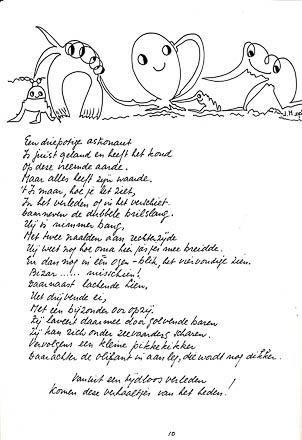 J.H.
Een driepotige astronaut
Is juist geland en heeft het koud
Op deze vreemde aarde.
Maar alles heeft zijn waarde.
't Is maar, hoe je het ziet,
In het verleden of in het verschiet.
daarneven de dubbele brilslang.
Hij is nummer bang,
Met twee naalden aan rechterzijde
Hij weet nog hoe oma hier jasjes mee breidde.
En dan nog in één ogen-blik, het viervoudige zien.
Bizar ...!... misschien!
daarnaast lachende hien,
Het drijvende ei,
Met een bijzonder oor opzij.
Zij laveert daarmee door golvende baren
Zij kan zich onder zeevaarders scharen.
Vervolgens een kleine pikkekikker
daarachter de olifant in aanleg, die wordt nog dikker.
Vanuit een tijdloos verleden
Komen deze verhaaltjes van het heden!
10